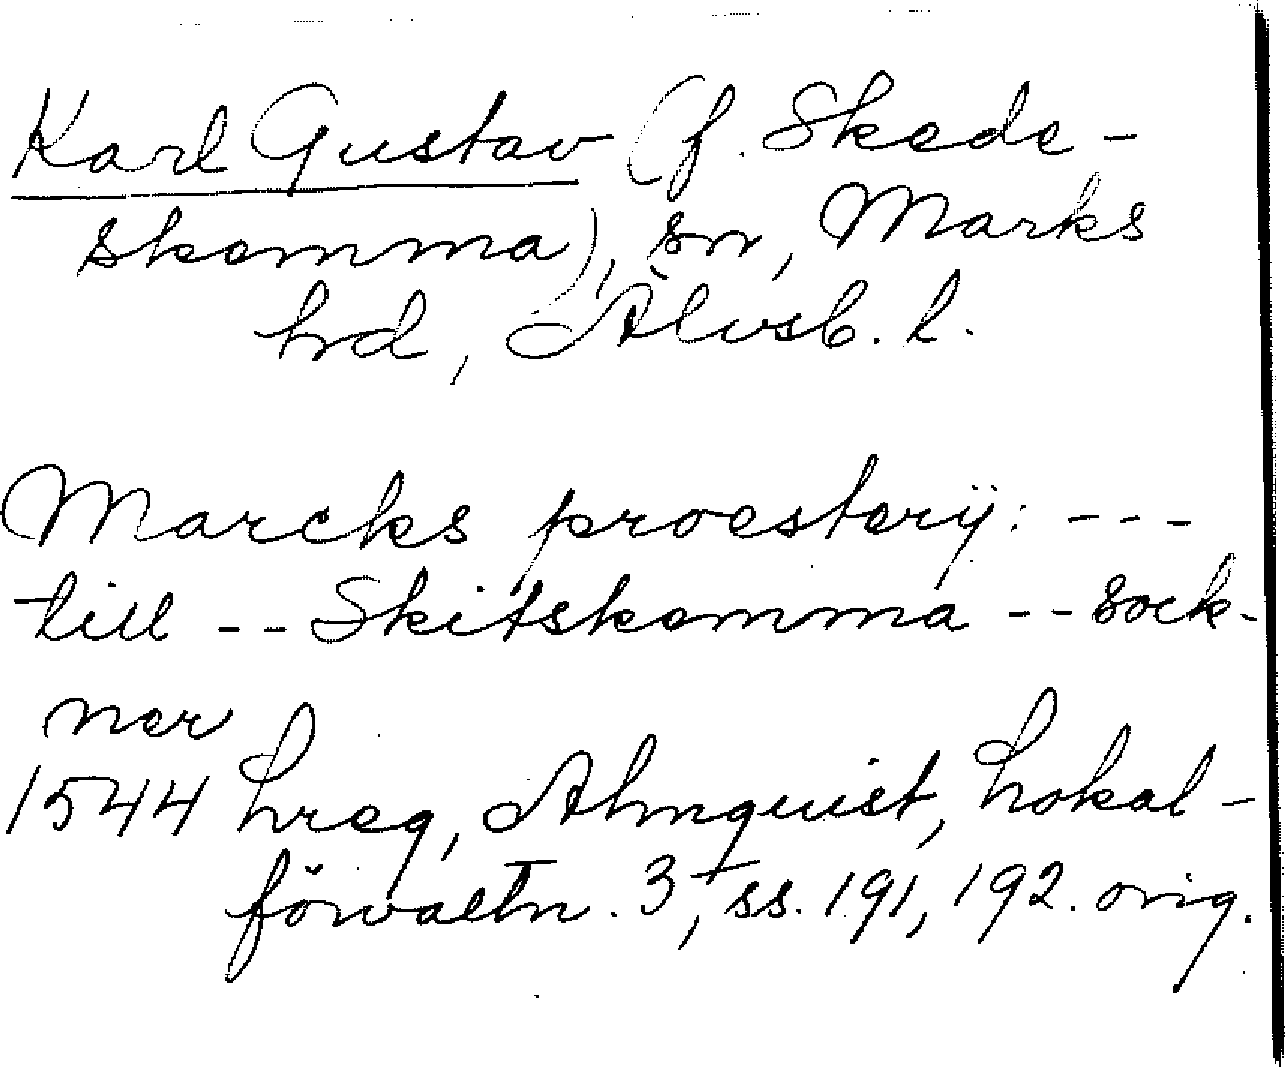 Karl Gustav (f. Skede-
skemma), sn, Marks
hd, Älvsb. l.
Marcks proesterij: ---
till -- Skitskemma -- sock-
ner
1544 hreg, Almquist, Lokal-
förvaltn. 3, ss. 191, 192. orig.